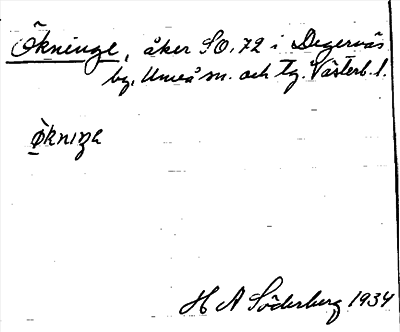 Ökninge, åker SO. 72 i Degernäs
by, Umeå sn. och tg. Västerb. l.
H A Söderberg 1934